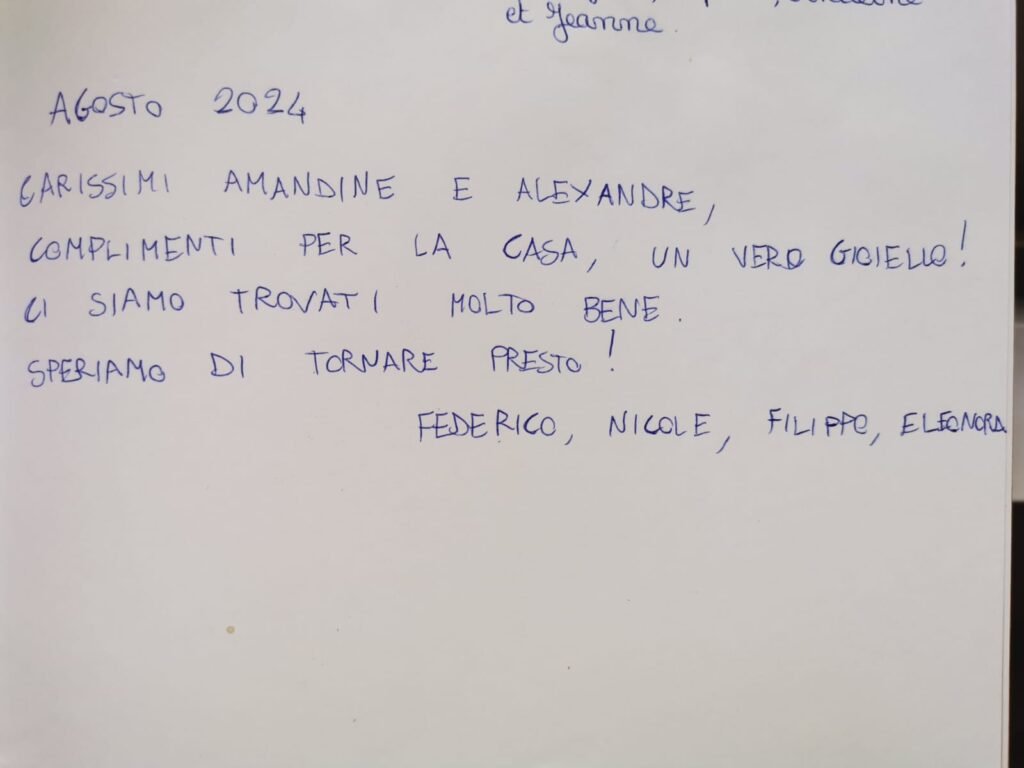 et Jeanne.
AGOSTO 2024
CARISSIMI AMANDINE E ALEXANDRE,
COMPLIMENTI PER LA CASA, UN VERO GIOIELLO!
CI SIAMO TROVATI MOLTO BENE.
SPERIAMO DI TORNARE PRESTO!
FEDERICO, NICOLE, FILIPPO, ELEONORA